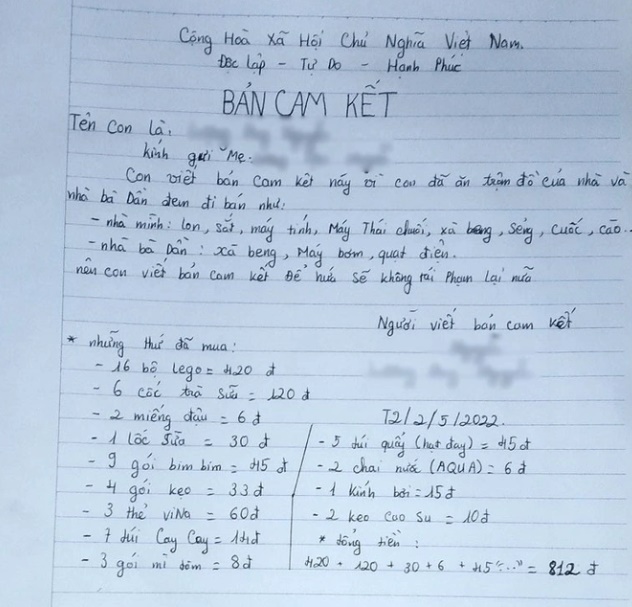 Cộng Hoà Xã Hội Chủ Nghĩa Việt Nam.
Độc lập - Tự Do - Hạnh Phúc
BẢN CAM KẾT
Tên Con là:
kính gửi Mẹ:
Con viết bản cam kết này vì con đã ăn trộm đồ của nhà và
nhà bà Dần đem đi bán như:
- nhà mình: lon, sắt, máy tính, Máy Thái chuối, xà beng, Sẻng, Cuốc, cào...
- nhà bà Dần: xà beng, Máy bơm, quạt điện.
nên con viết bản cam kết Để hứa sẽ không tái Phạm lại nữa
Người viết bản cam kết
* những thứ đã mua:
- 16 bộ lego = 420 đ
- 6 cốc trà sữa = 120 đ
- 2 miếng đậu = 6 đ
- 1 lốc Sữa = 30 đ
- 9 gói bim bim = 45 đ
- 4 gói kẹo = 33 đ
- 3 thẻ viNa = 60đ
- 7 túi Cay Cay = 14đ
- 3 gói mì tôm = 8đ
T2/2/5/2022.
- 5 túi quẩy (hạt đay) = 45đ
- 2 chai nước (AQUA) = 6đ
- 1 kính bơi = 15đ
- 2 kẹo cao su = 10đ
* tổng tiền:
420 + 120 + 30 + 6 + 45 "..." = 812 đ